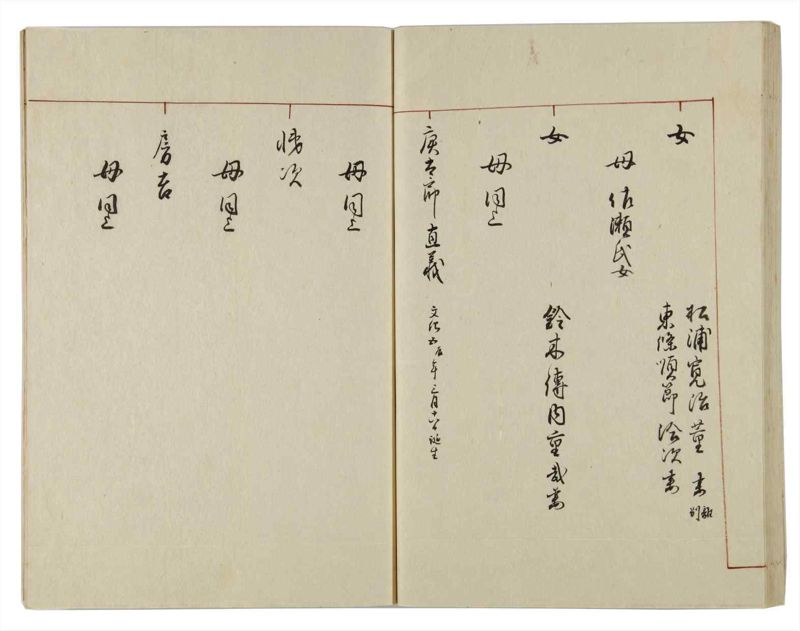 女
母 佐瀬氏女
松浦寛治董 妻 離別
東條順節 妻
女
母同上
鈴木傳内重哉妻
庚吉郎 直義
文化五辰年三月十 誕生
母同上
次
母同上
房吉
母同上